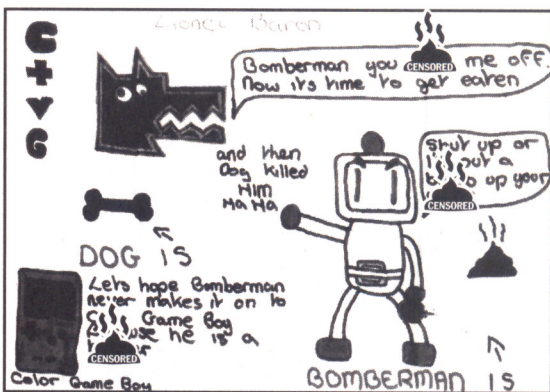 Lionel Baron
C
+
V
G
Bomberman you CENSORED me off.
Now its time to get eaten
and then
Dog killed
Him
Ha Ha
Shut up or
put a
up your
CENSORED
DOG IS
Lets hope Bomberman
never makes it on to
Game Boy
he is a
CENSORED
Color Game Boy
BOMBERMAN IS